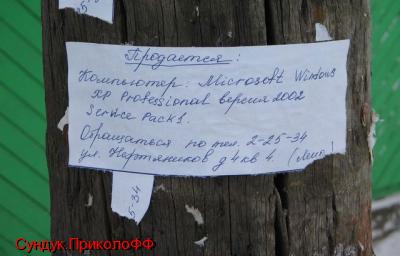 Продается:
Компьютер: Microsoft Windows
XP Professional версия 2002
Service Pack 1.
Обращаться по тел. 2-25-34
ул. Нефтяников д 4 кв 4. (Лена)
5-34
Сундук.ПриколоФФ